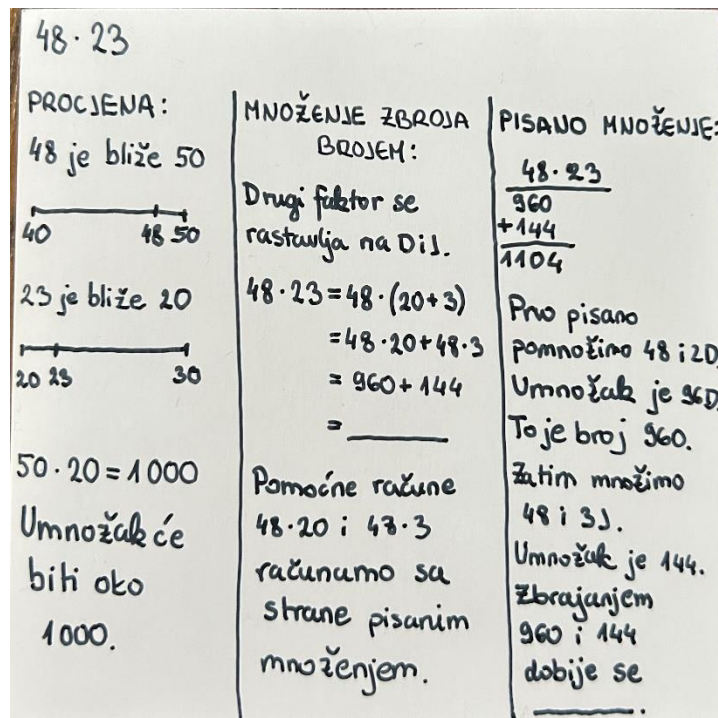 48·23
PROCJENA:
48 je bliže 50
40 48 50
23 je bliže 20
20 23 30
50·20=1000
Umnožak će
biti oko
1000.
MNOŽENJE ZBROJA
BROJEM:
Drugi faktor se
rastavlja na D i J.
48·23=48·(20+3)
=48·20+48·3
=960+144
=
Pomoćne račune
48·20 i 48·3
računamo sa
strane pisanim
množenjem.
PISANO MNOŽENJE:
48·23
960
+144
1104
Prvo pisano
pomnožimo 48 i 2D.
Umnožak je 96D.
To je broj 960.
Zatim množimo
48 i 3J.
Umnožak je 144.
Zbrajanjem
960 i 144
dobije se
.